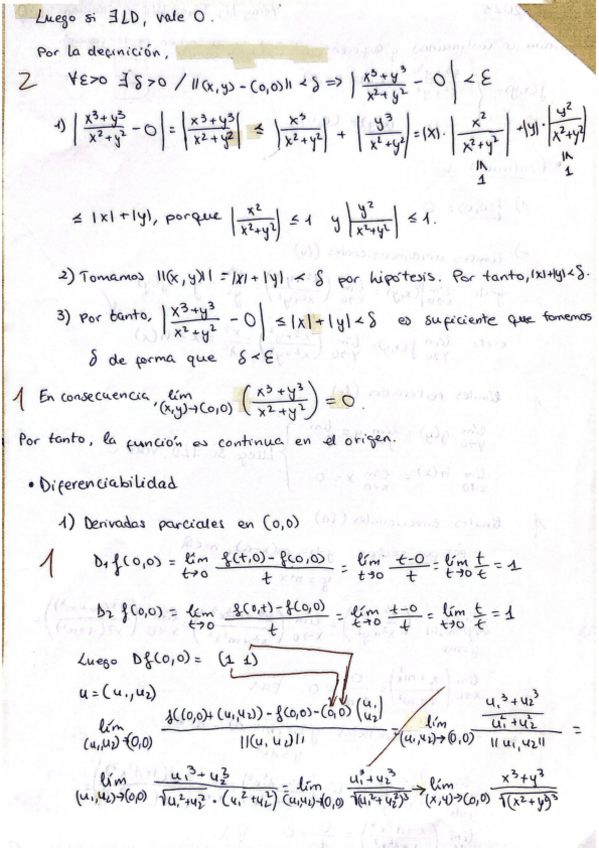 Luego si ∃LD, vale 0.
Por la definición,
2 ∀ε>0 ∃δ>0 / ||(x,y) - (0,0)|| < δ ⇒ |(x³+y³)/(x²+y²) - 0| < ε
1) |(x³+y³)/(x²+y²) - 0| = |(x³+y³)/(x²+y²)| ≤ |x³/(x²+y²)| + |y³/(x²+y²)| = |x|·|x²/(x²+y²)| + |y|·|y²/(x²+y²)|
≤ 1 ≤ 1
≤ |x|+|y|, porque |x²/(x²+y²)| ≤ 1 y |y²/(x²+y²)| ≤ 1.
2) Tomamos ||(x,y)|| = |x|+|y| < δ por hipótesis. Por tanto, |x|+|y|<δ.
3) Por tanto, |(x³+y³)/(x²+y²) - 0| ≤ |x|+|y| < δ es suficiente que tomemos
δ de forma que δ<ε
1 En consecuencia, lím (x,y)→(0,0) ((x³+y³)/(x²+y²)) = 0.
Por tanto, la función es continua en el origen.
• Diferenciabilidad
1) Derivadas parciales en (0,0)
1 D₁f(0,0) = lím t→0 (f(t,0)-f(0,0))/t = lím t→0 (t-0)/t = lím t→0 t/t = 1
D₂f(0,0) = lím t→0 (f(0,t)-f(0,0))/t = lím t→0 (t-0)/t = lím t→0 t/t = 1
Luego Df(0,0) = (1 1)
u = (u₁,u₂)
lím (u₁,u₂)→(0,0) (f((0,0)+(u₁,u₂)) - f(0,0) - (0,0)(u₁ u₂))/||(u₁,u₂)|| = lím (u₁,u₂)→(0,0) ((u₁³+u₂³)/(u₁²+u₂²))/||u₁,u₂|| =
lím (u₁,u₂)→(0,0) (u₁³+u₂³)/(√(u₁²+u₂²)·(u₁²+u₂²)) = lím (u₁,u₂)→(0,0) (u₁³+u₂³)/√(u₁²+u₂²)³ → lím (x,y)→(0,0) (x³+y³)/√(x²+y²)³